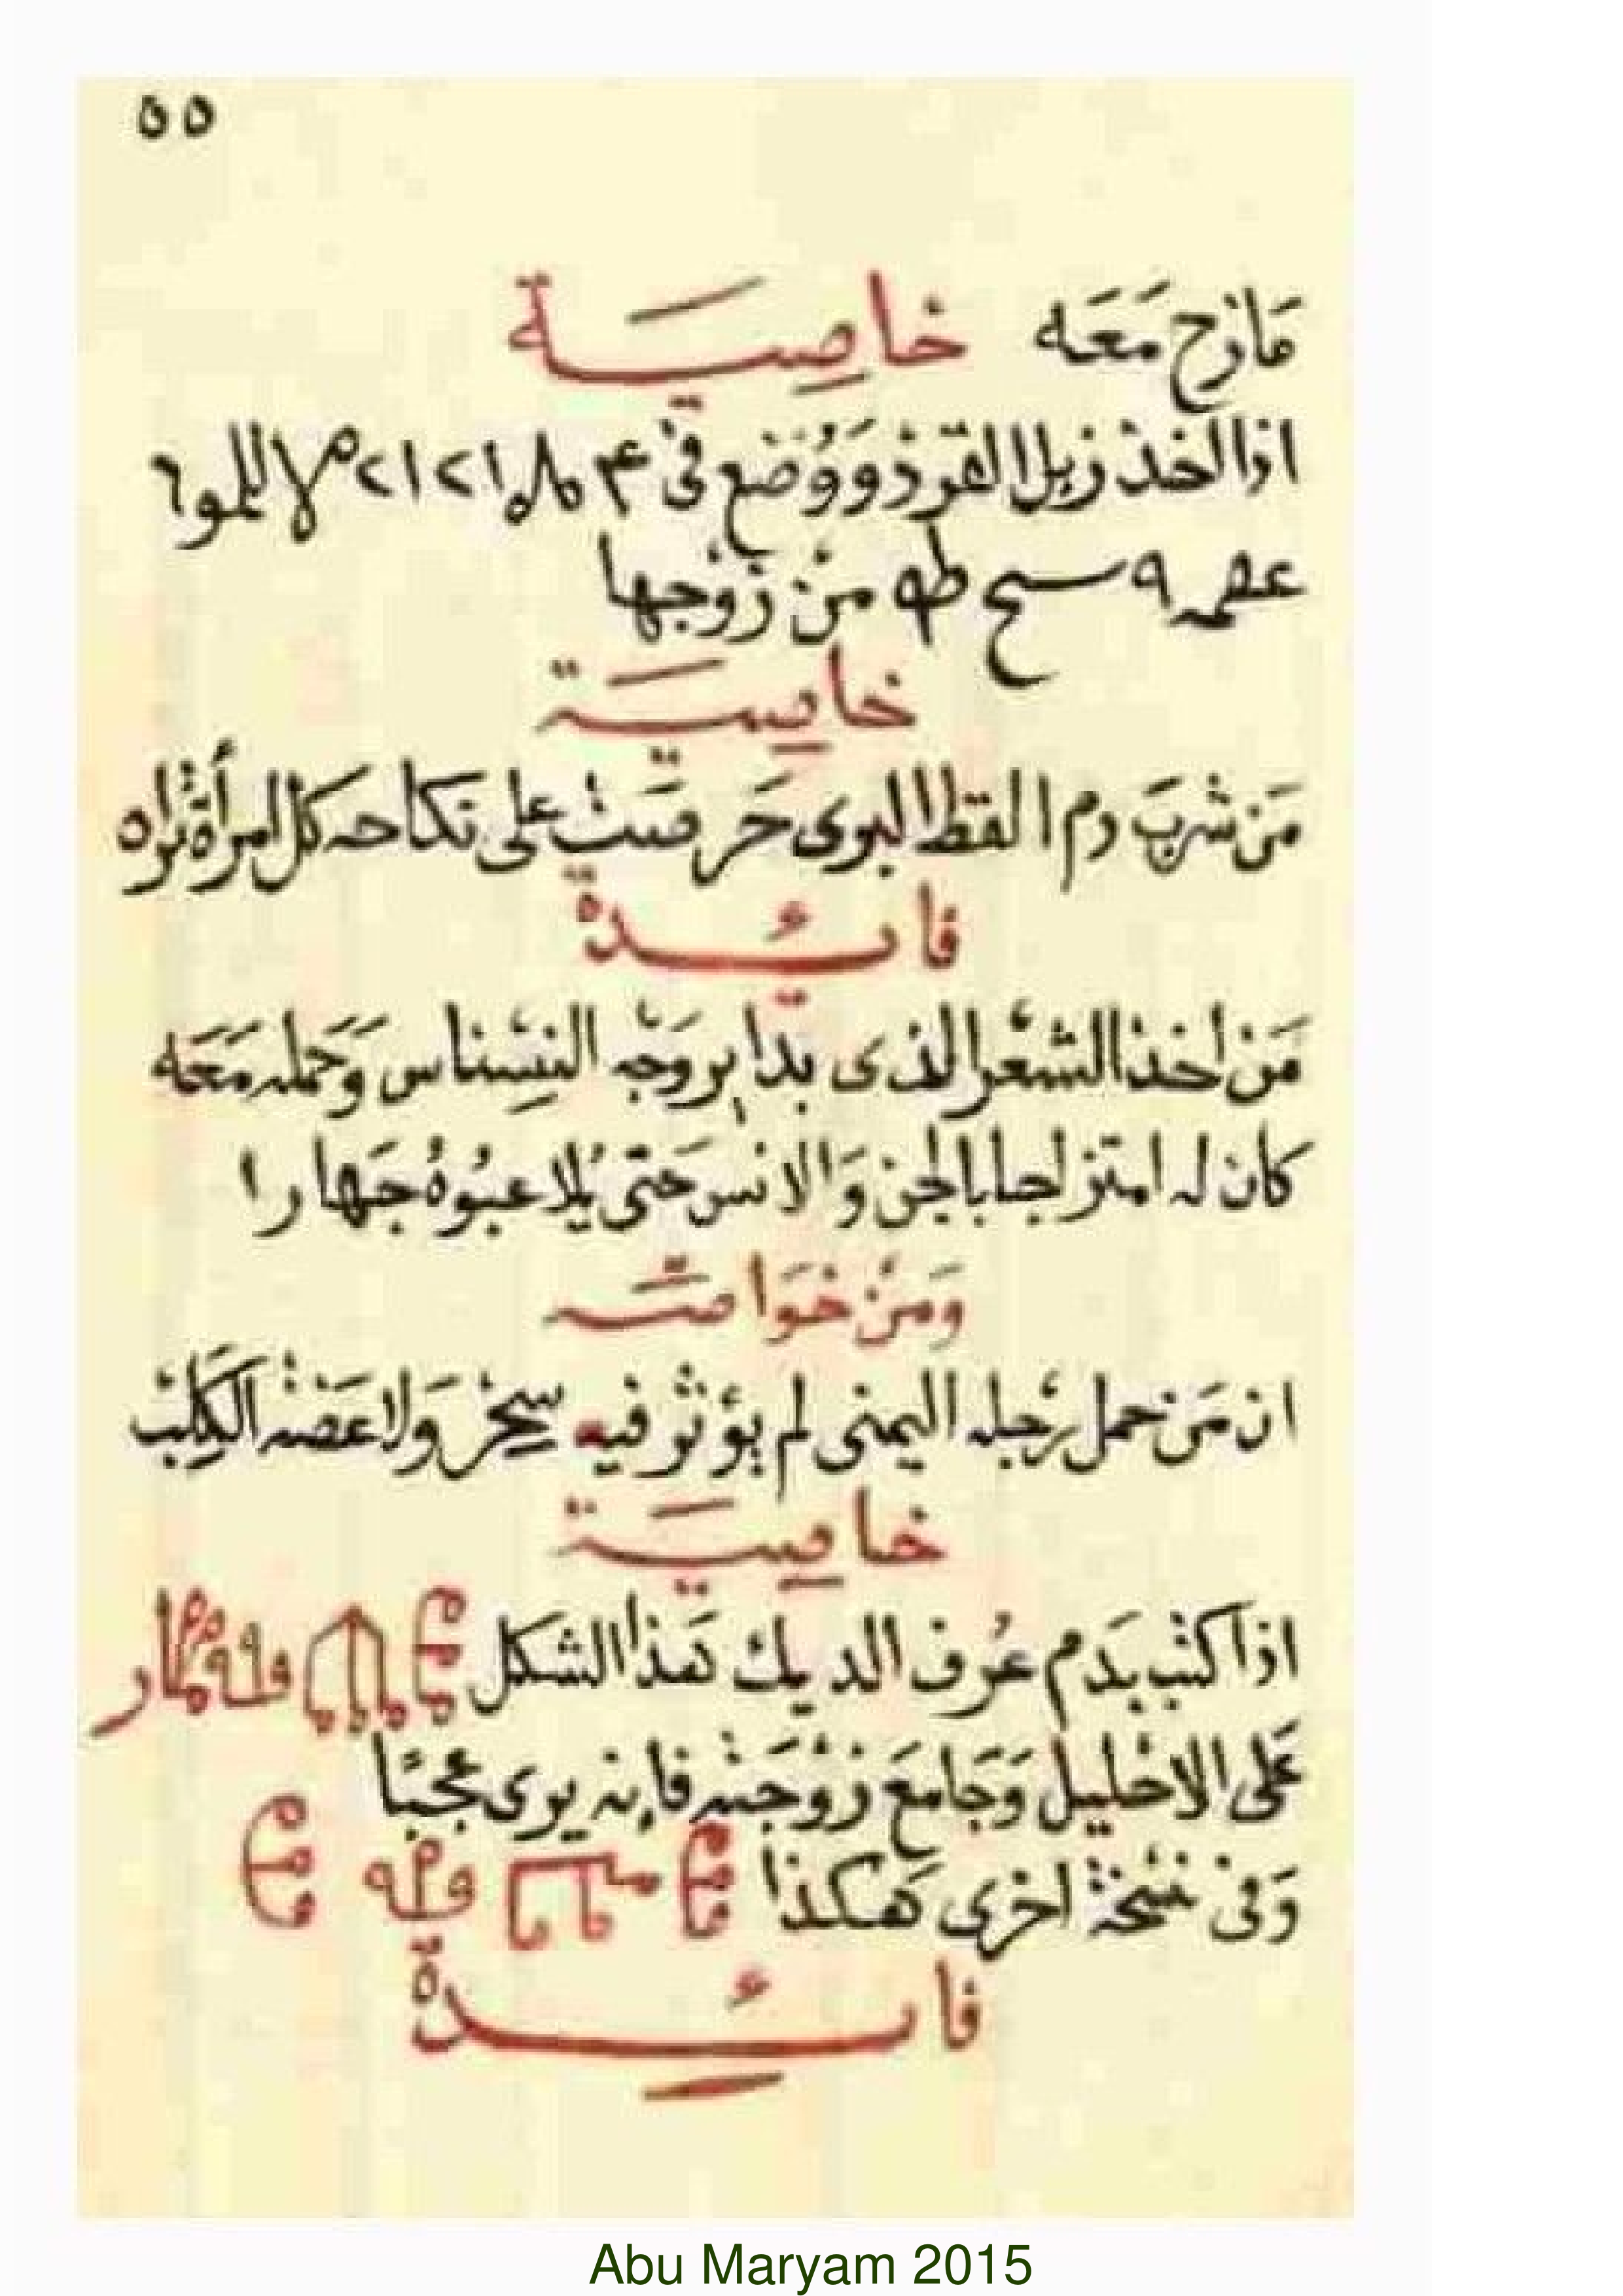 ٥٥
مَازح مَعَه خاصِيَة
اذا اخذ زبل القرد وَوُضع في
من زوجها
خاصِيَة
مَن شربَ دم القط البرى حَرصَت على نكاحه كل امرأة تراه
فايئدة
مَن اخذ الشعر الذى بدا بروَجه النِسناس وَحَمله مَعَه
كان له امتزاجا بالجن وَالانس حَتى يُلاعبُوهُ جهارا
وَمن خوَاصّه
ان مَن حمل رجله اليمنى لم يؤثر فيه سِحِر وَلا عَضه الكَلِب
خاصِيَة
اذا كتب بدَم عُرف الديك هَذا الشكل
عَلى الاحليل وَجَامَعَ زوجَته فإنه يرى عجبًا
وَفى نسخة اخرى هَكذا
فايئدة
Abu Maryam 2015